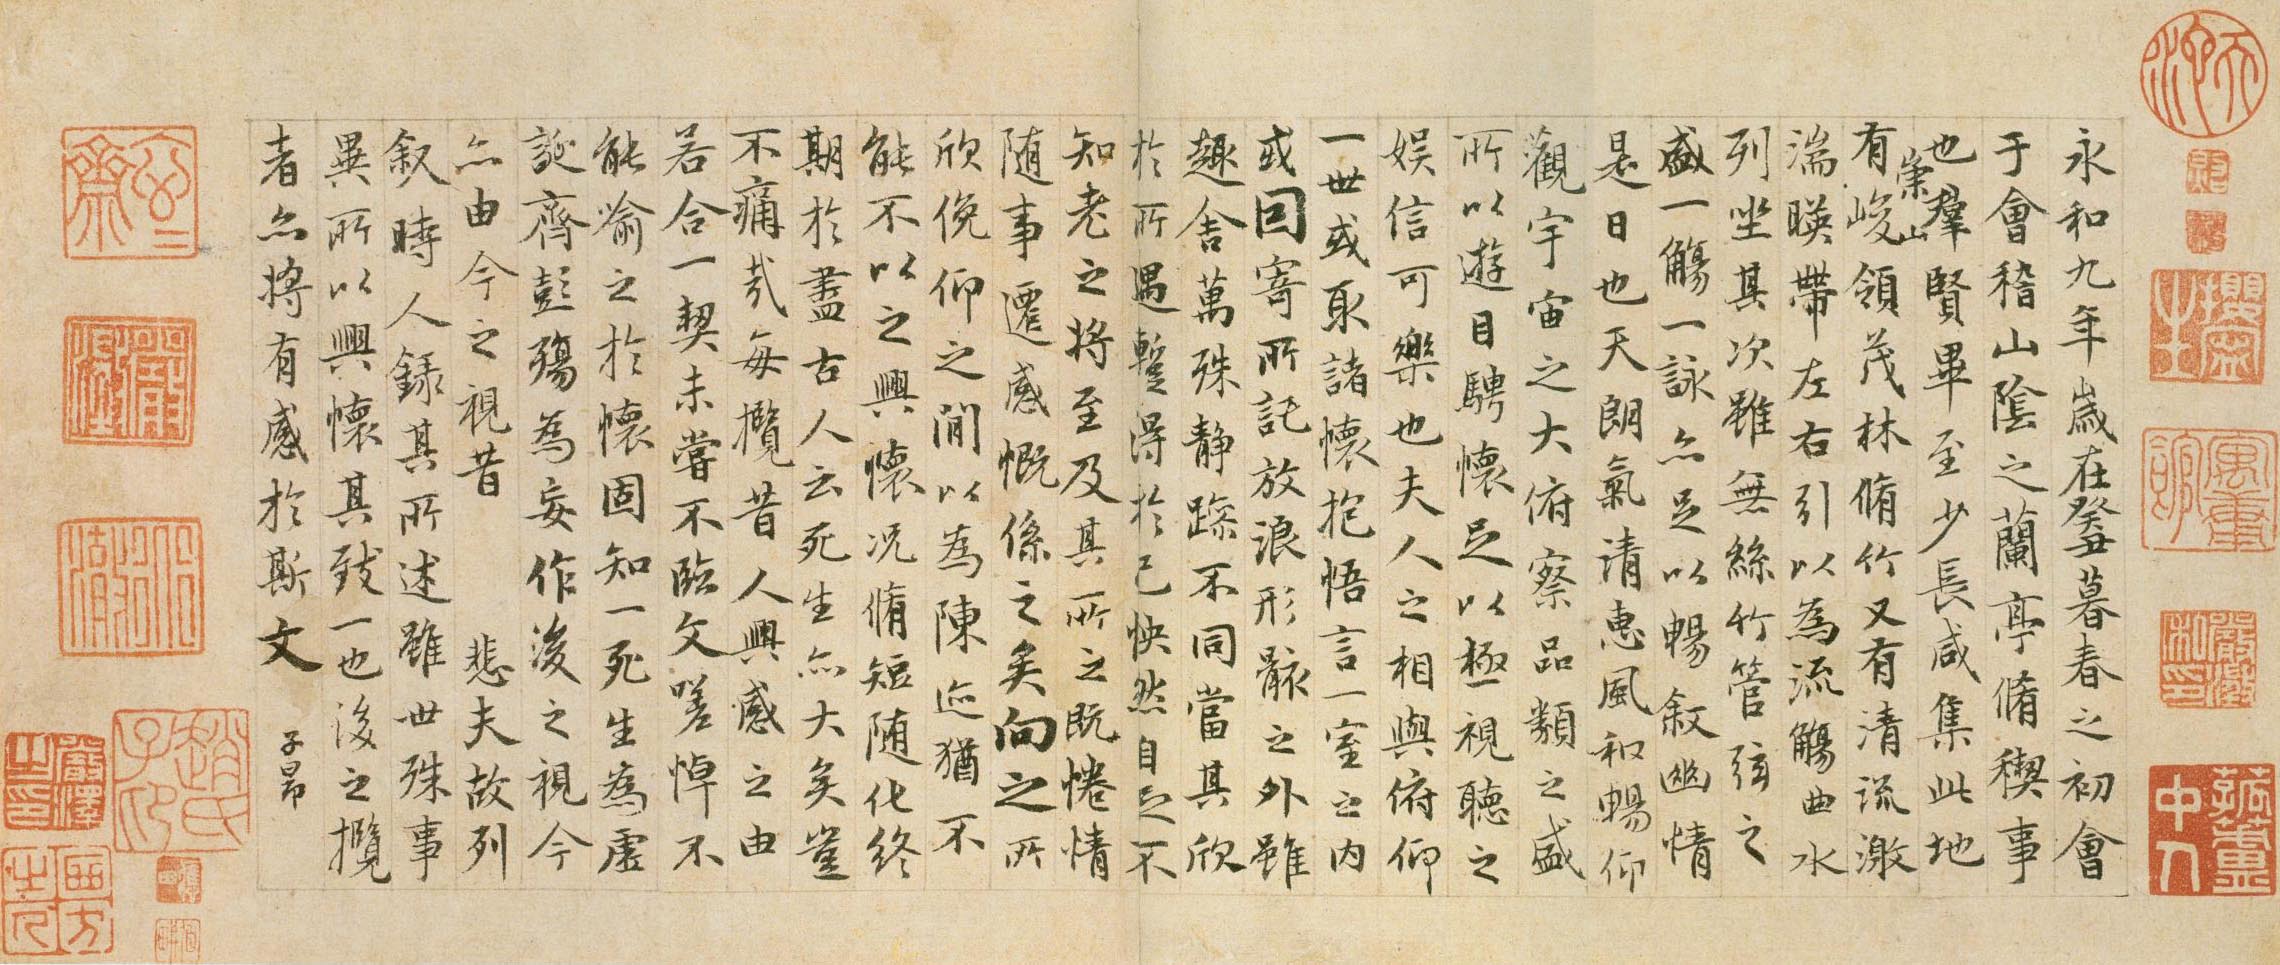 永和九年歲在癸丑暮春之初會
于會稽山陰之蘭亭脩稧事
也羣賢畢至少長咸集此地
有崇山峻領茂林脩竹又有清流激
湍暎帶左右引以為流觴曲水
列坐其次雖無絲竹管弦之
盛一觴一詠亦足以暢叙幽情
是日也天朗氣清惠風和暢仰
觀宇宙之大俯察品類之盛
所以遊目騁懷足以極視聽之
娛信可樂也夫人之相與俯仰
一世或取諸懷抱悟言一室之内
或因寄所託放浪形骸之外雖
趣舍萬殊静躁不同當其欣
於所遇蹔得於己怏然自足不
知老之將至及其所之既惓情
随事遷感慨係之矣向之所
欣俛仰之間以為陳迹猶不
能不以之興懷況脩短随化終
期於盡古人云死生亦大矣豈
不痛哉每攬昔人興感之由
若合一契未嘗不臨文嗟悼不
能喻之於懷固知一死生為虛
誕齊彭殤為妄作後之視今
亦由今之視昔 悲夫故列
叙時人録其所述雖世殊事
異所以興懷其致一也後之攬
者亦將有感於斯文
子昂
趙氏子印